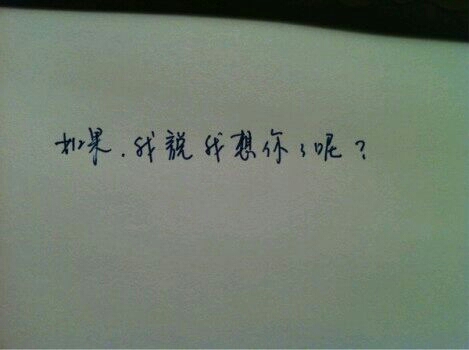 如果.我說我想你了呢?